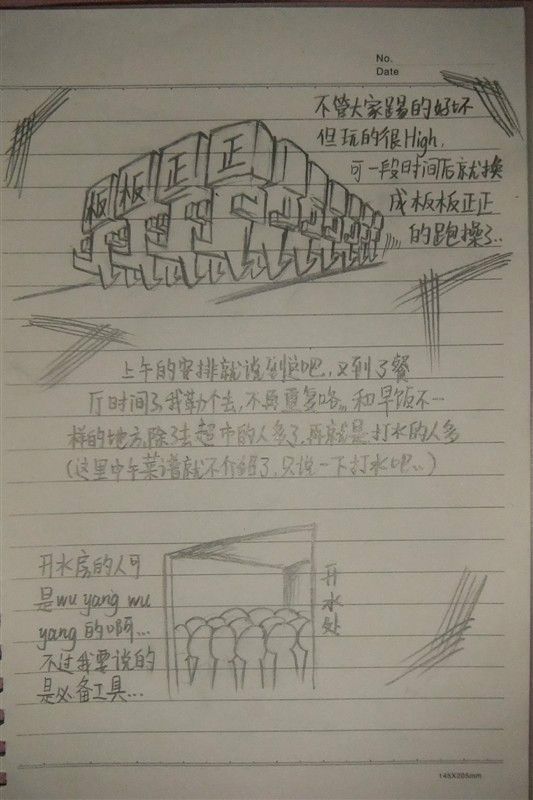 No.
Date
不管大家踢的好坏
但玩的很High,
可一段时间后就换
成板板正正
的跑操了..
板 板 正 正
上午的安排就说到这吧,又到了餐
厅时间了我勒个去,不再重复咯,,和早饭不一
样的地方除了去超市的人多了,再就是打水的人多
(这里中午菜谱就不介绍了,只说一下打水吧..)
开水房的人可
是wu yang wu
yang 的啊...
不过我要说的
是必备工具...
开水处
148X205mm